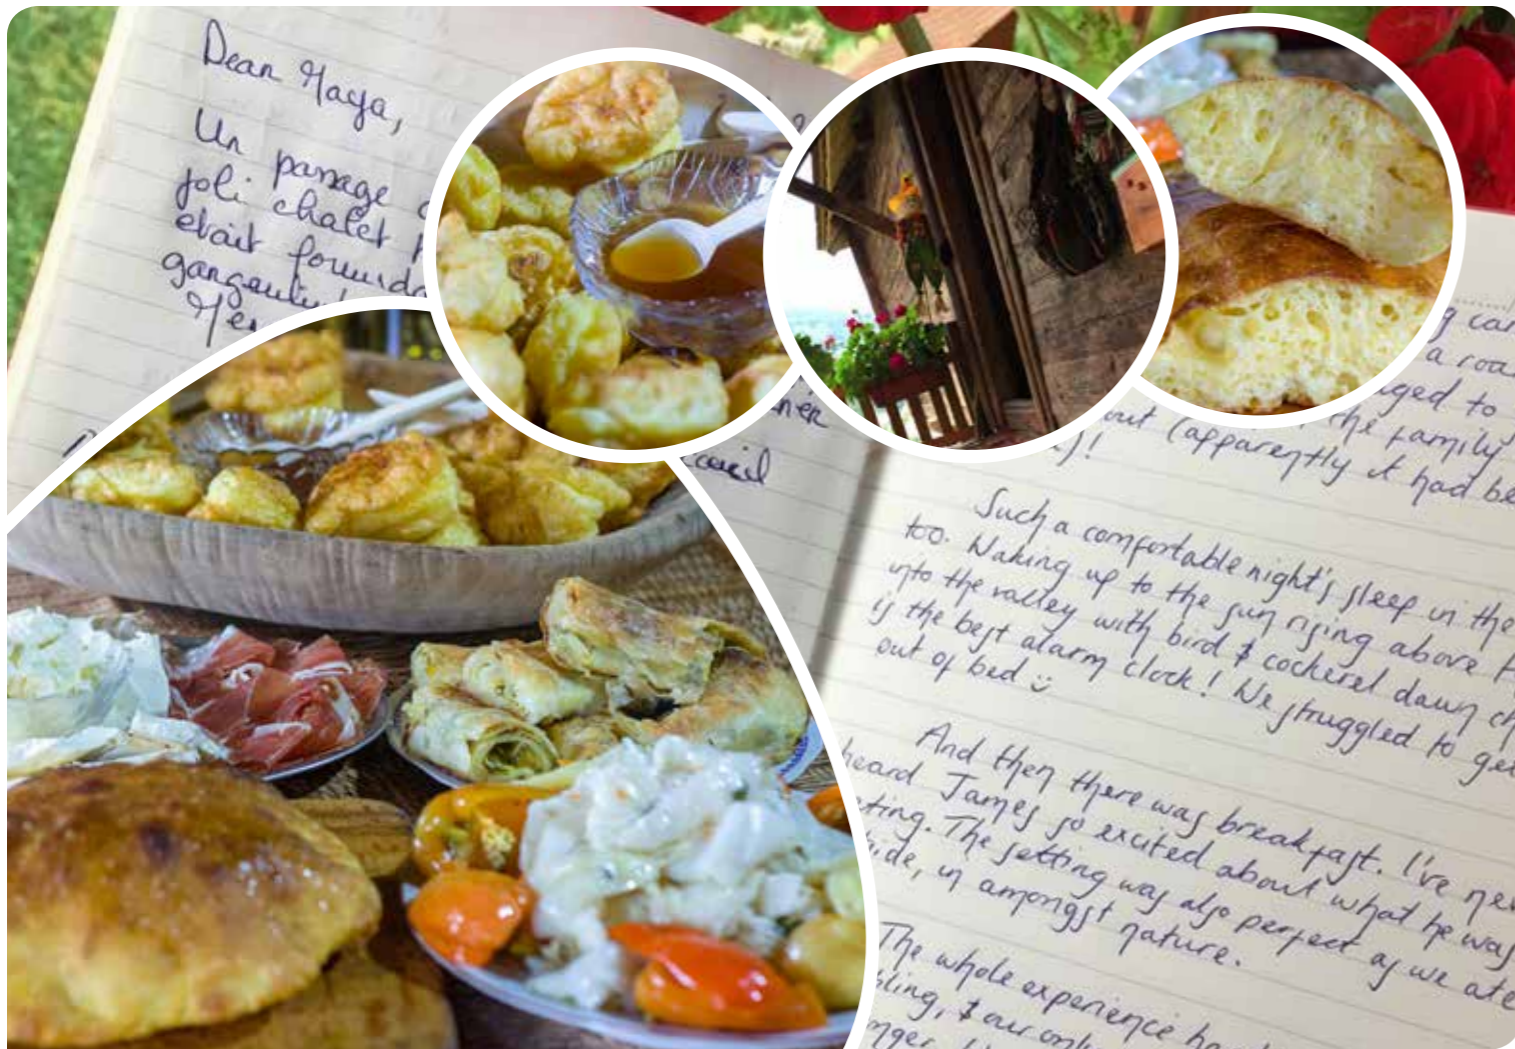 Dear Maya,
Un passage
joli chalet
était formida
gargantu
Mer
g car
a roa
aged to
the family
out (apparently it had be
Such a comfortable night's sleep in the
too. Waking up to the sun rising above
into the valley with bird & cockerel dawn ch
is the best alarm clock! We struggled to ge
out of bed
And then there was breakfast. I've nev
heard James so excited about what he was
ating. The setting was also perfect as we ate
side, in amongst nature.
The whole experience
bling, & our only
nger